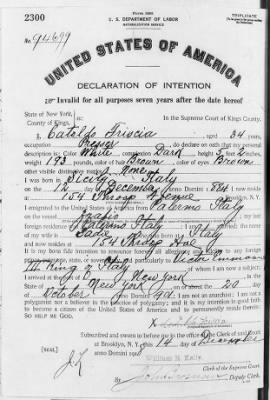 TRIPLICATE
Form 2202
2300
U. S. DEPARTMENT OF LABOR
NATURALIZATION SERVICE
No. 94699
UNITED STATES OF AMERICA
DECLARATION OF INTENTION
Invalid for all purposes seven years after the date hereof
State of New York,
County of Kings,
In the Supreme Court of Kings County.
I, Cataldo Friscia aged 34 years,
occupation Presser, do declare on oath that my personal
description is: Color White, complexion Dark, height 5 feet 2 inches,
weight 193 pounds, color of hair Brown, color of eyes Brown
other visible distinctive marks None
I was born in Italy
on the 12 day of December, anno Domini 1 881; I now reside
at 54 Throop Avenue, Brooklyn, N.Y.
I emigrated to the United States of America from Palermo Italy
Palermo Italy
of my wife is Sadie Italy
and now resides at 54 Throop Ave
It is my bona fide intention to renounce forever all allegiance and fidelity to any foreign
prince, potentate, state, or sovereignty, and particularly to Victor Emmanuel
III King of Italy, of whom I am now a subject;
I arrived at the port of New York
State of New York on or about the 20 day
of October, anno Domini 1 ; I am not an anarchist; I am not a
polygamist nor a believer in the practice of polygamy; and it is my intention in good faith
to become a citizen of the United States of America and to permanently reside therein:
SO HELP ME GOD.
Subscribed and sworn to before me in the office of the Clerk of said Court
at Brooklyn, N.Y., this 14 day of December
[SEAL] anno Domini
William E. Kelly
Clerk of the Supreme Court.
By Deputy Clerk.